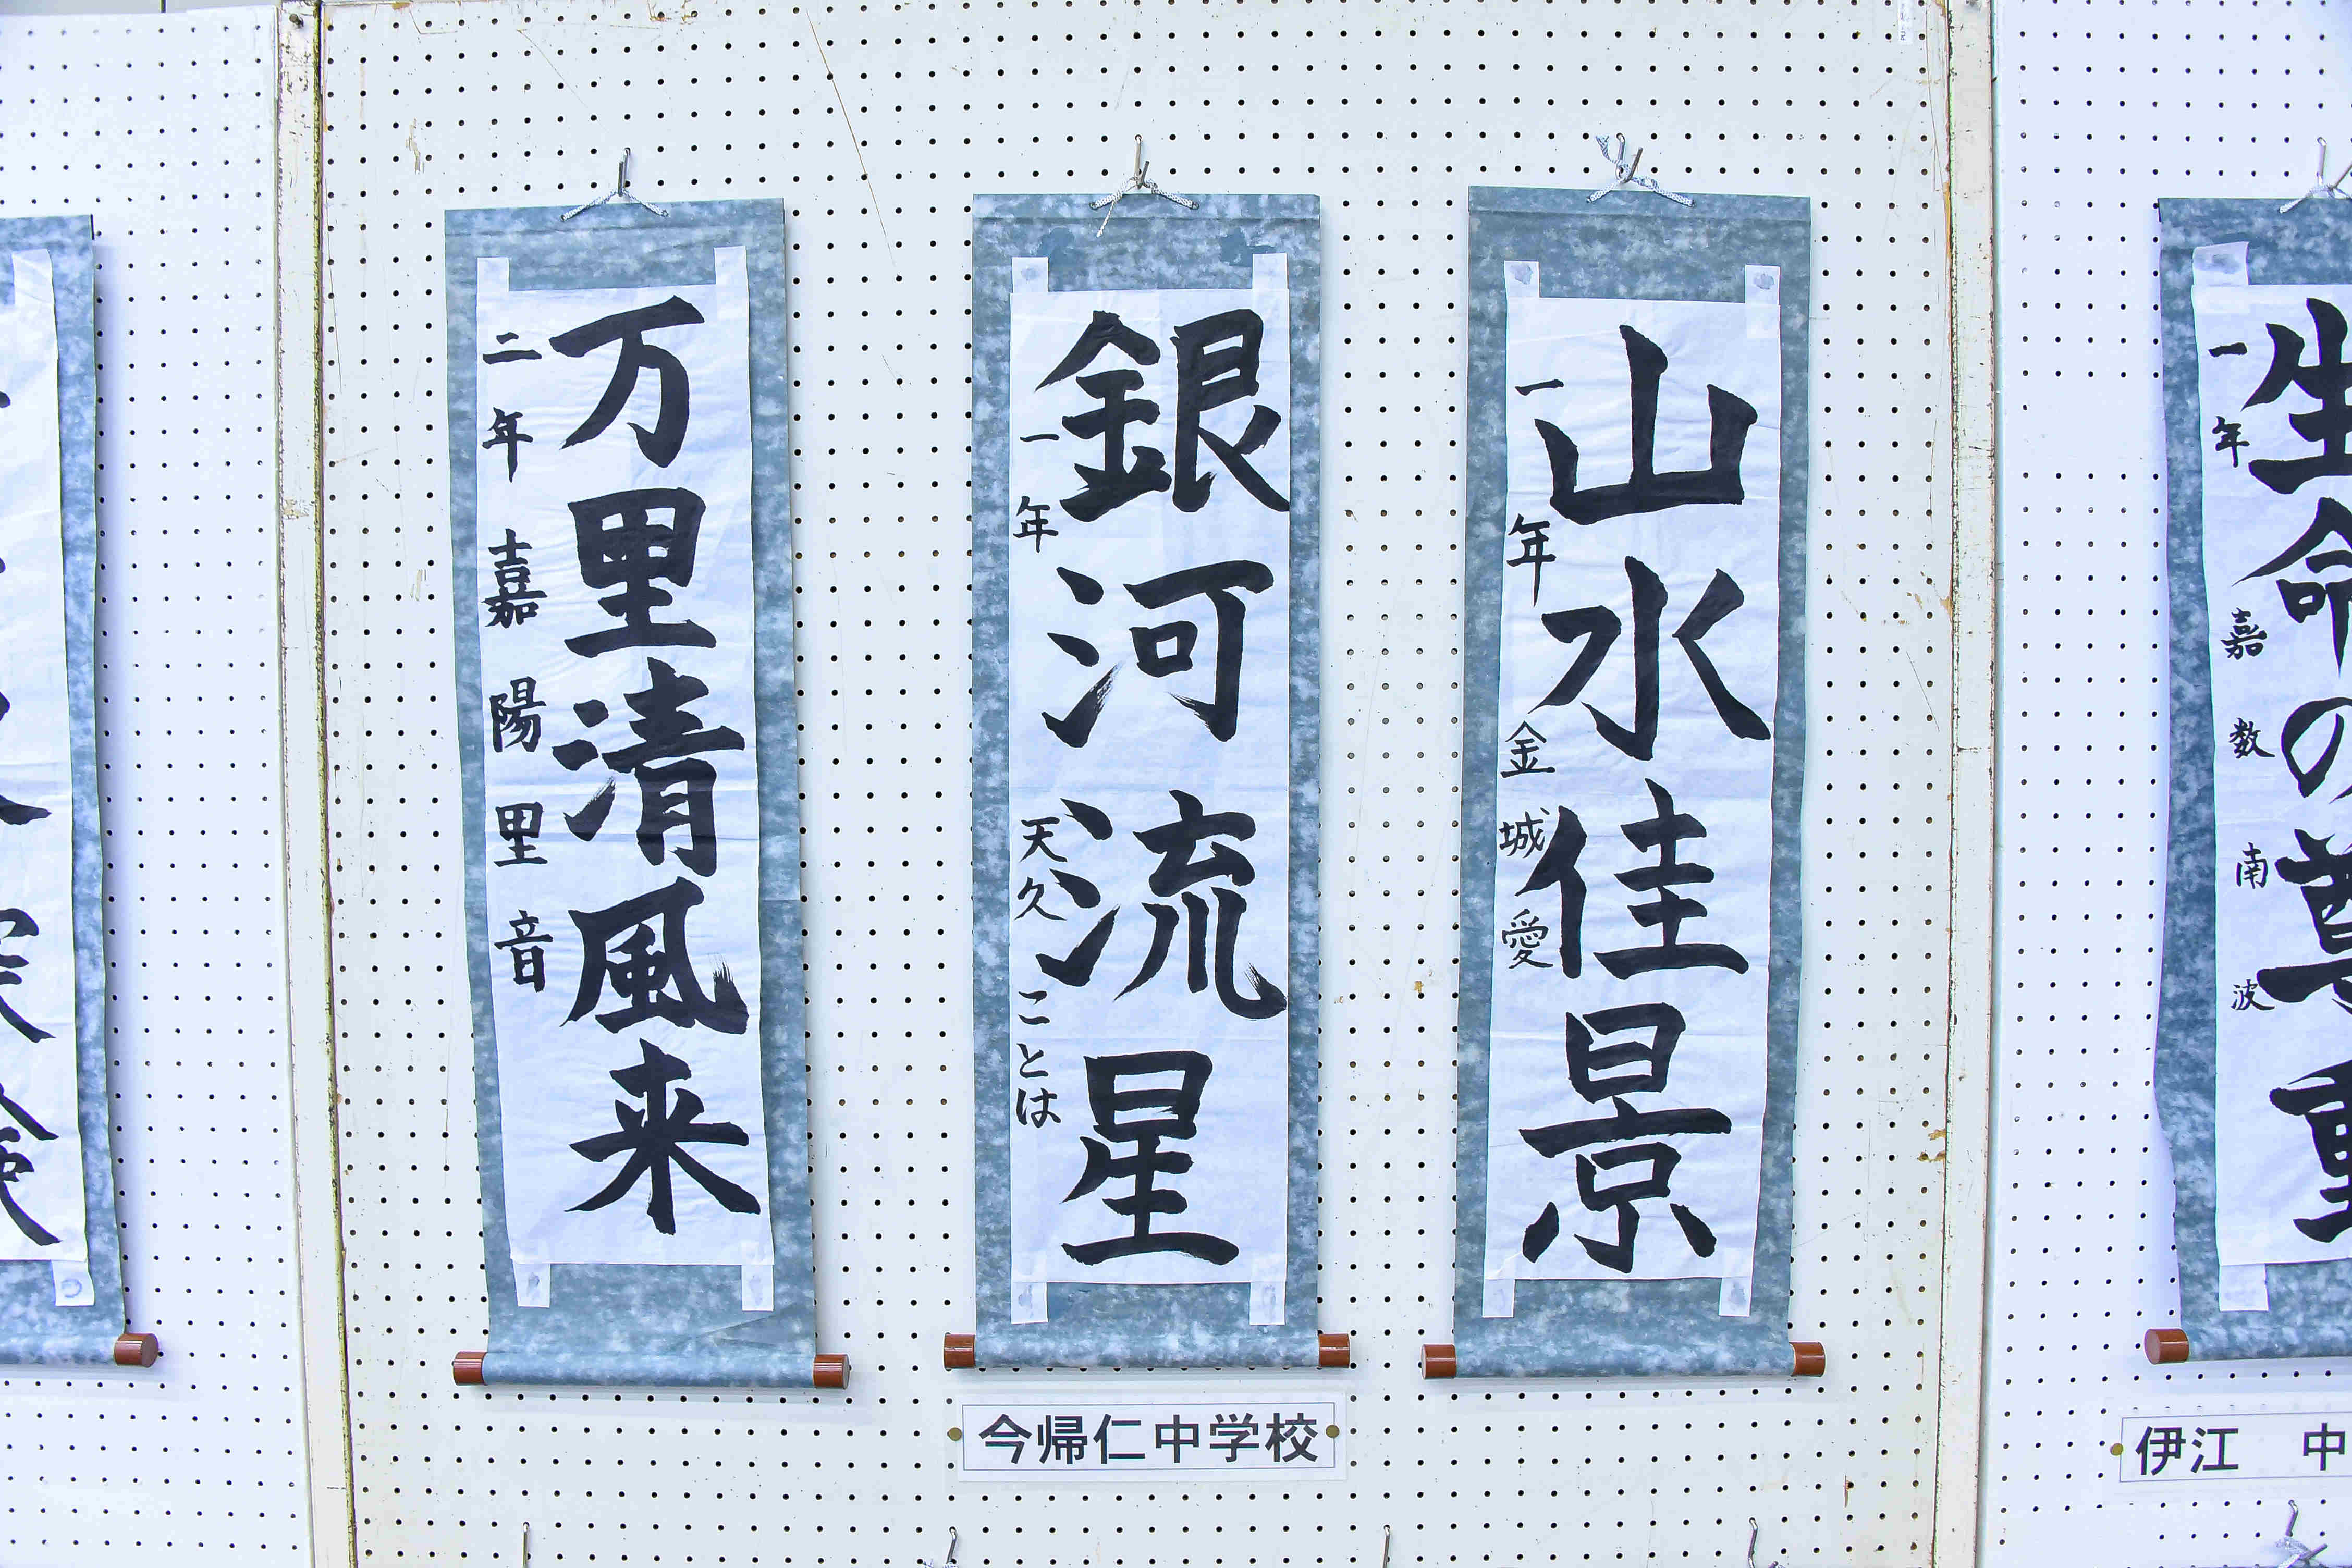 万里清風来
二年 嘉陽里音
銀河流星
一年 天久ことは
山水佳景
一年 金城愛
今帰仁中学校
生命の尊重
一年 嘉数南波
伊江 中